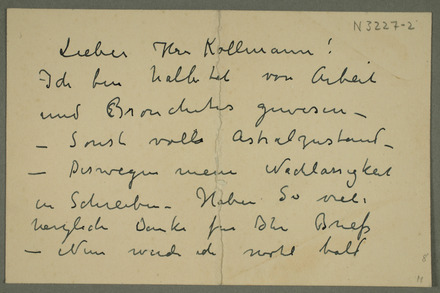 N 3227-2
Lieber Herr Kollmann!
Ich bin halbtot von Arbeit
und Bronchitis gewesen –
– Sonst volle Astralzustand –
– Deswegen meine Nachlässigkeit
in Schreiben – Haben So viel
herzlich Danke für Ihr Brief
– Nun werde ich wohl bald